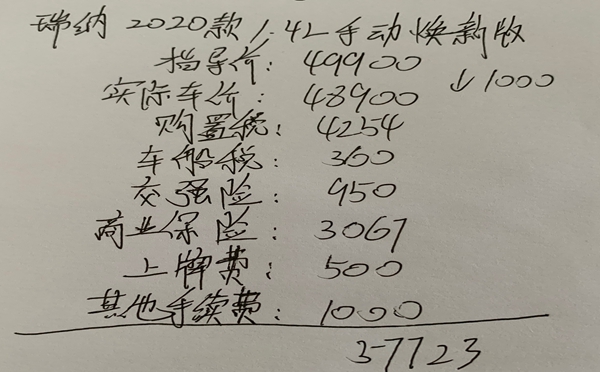 瑞纳 2020款 1.4L手动焕新版
指导价: 49900
实际车价: 48900 ↓1000
购置税: 4254
车船税: 360
交强险: 950
商业保险: 3067
上牌费: 500
其他手续费: 1000
37723